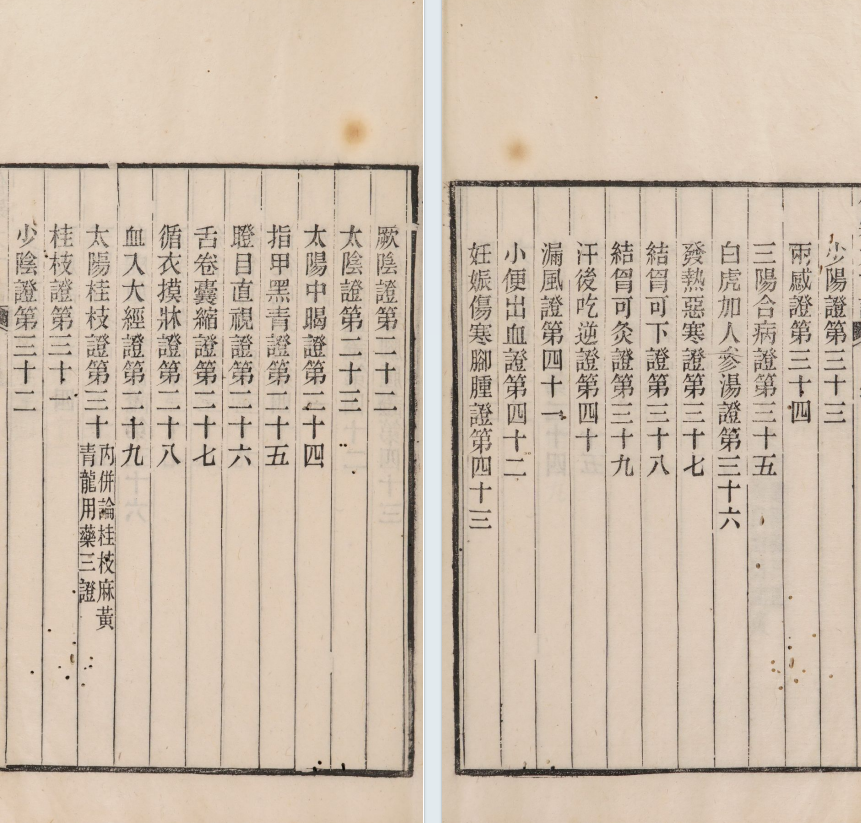 厥陰證第二十二
太陰證第二十三
太陽中暍證第二十四
指甲黑青證第二十五
瞪目直視證第二十六
舌卷囊縮證第二十七
循衣摸牀證第二十八
血入大經證第二十九
太陽桂枝證第三十
内併論桂枝麻黃
青龍用藥三證
桂枝證第三十一
少陰證第三十二
少陽證第三十三
兩感證第三十四
三陽合病證第三十五
白虎加人參湯證第三十六
發熱惡寒證第三十七
結胷可下證第三十八
結胷可灸證第三十九
汗後吃逆證第四十
漏風證第四十一
小便出血證第四十二
妊娠傷寒腳腫證第四十三